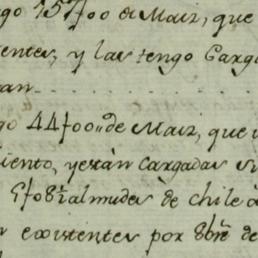 go 157f00 de Maiz, que
entes, y las tengo Carga
an
go 44f00 de Maiz, que
iento, y están Cargadas
almudes de chile
existentes por 8bre de